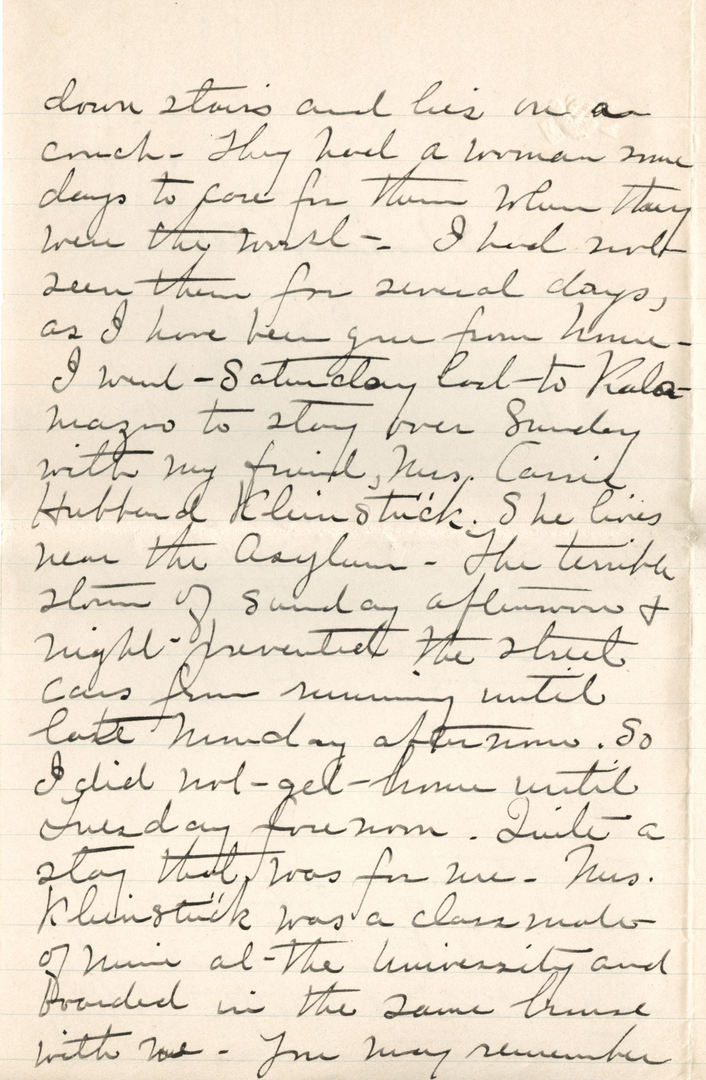 down stairs and lies on a
couch - They had a woman some
days to care for them when they
were the worst - . I had not
seen them for several days,
as I have been gone from home -
I went - Saturday last - to Kala-
mazoo to stay over Sunday
with my friend, Mrs. Carrie
Hubbard Kleinstück. She lives
near the Asylum - The terrible
storm of Sunday afternoon &
night - prevented the street
cars from running until
late Monday afternoon. So
I did not - get - home until
Tuesday forenoon. Quite a
stay that was for me - Mrs.
Kleinstück was a classmate
of mine at - the University and
boarded in the same house
with me - You may remember